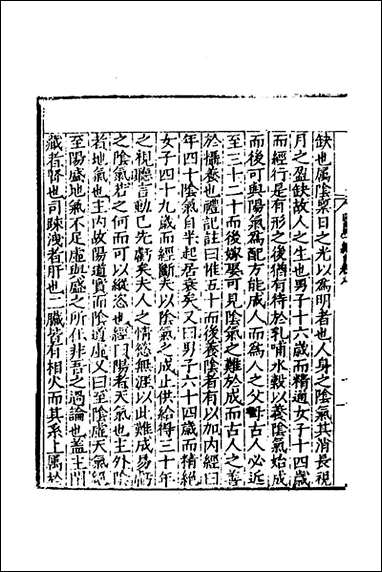 缺也屬陰稟日之光以爲明者也人身之陰氣其消長視
月之盈缺故人之生也男子十六歲而精通女子十四歲
而經行是有形之後猶有待於乳哺水穀以養陰氣始成
而後可與陽氣爲配方能成人而爲人之父母古人必近
至三十二十而後嫁娶可見陰氣之難於成而古人之善
於攝養也禮記註曰惟五十而後養陰者有以加内經曰
年四十陰氣自半起居衰矣又曰男子六十四歲而精絕
女子四十九歲而經斷夫以陰氣之成止供給得三十年
之視聽言動已先虧矣夫人之情慾無涯以此難成易虧
之陰氣若之何而可以縱恣也經曰陽者天氣也主外陰
者地氣也主内故陽道實而陰道虛又曰至陰虛天氣絕
至陽盛地氣不足虛與盛之所在非吾之過論也蓋主閉
藏者腎也司疎洩者肝也二臟皆有相火而其系上屬於